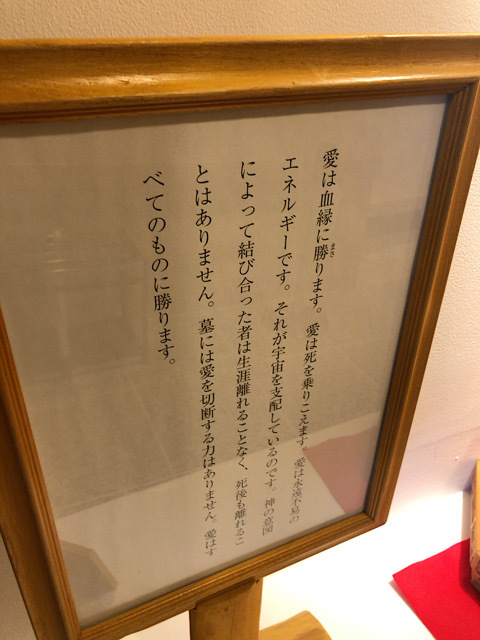 愛は血縁に勝ります。愛は死を乗りこえます。愛は永遠不易の
エネルギーです。それが宇宙を支配しているのです。神の意図
によって結び合った者は生涯離れることなく、死後も離れるこ
とはありません。墓には愛を切断する力はありません。愛はす
べてのものに勝ります。